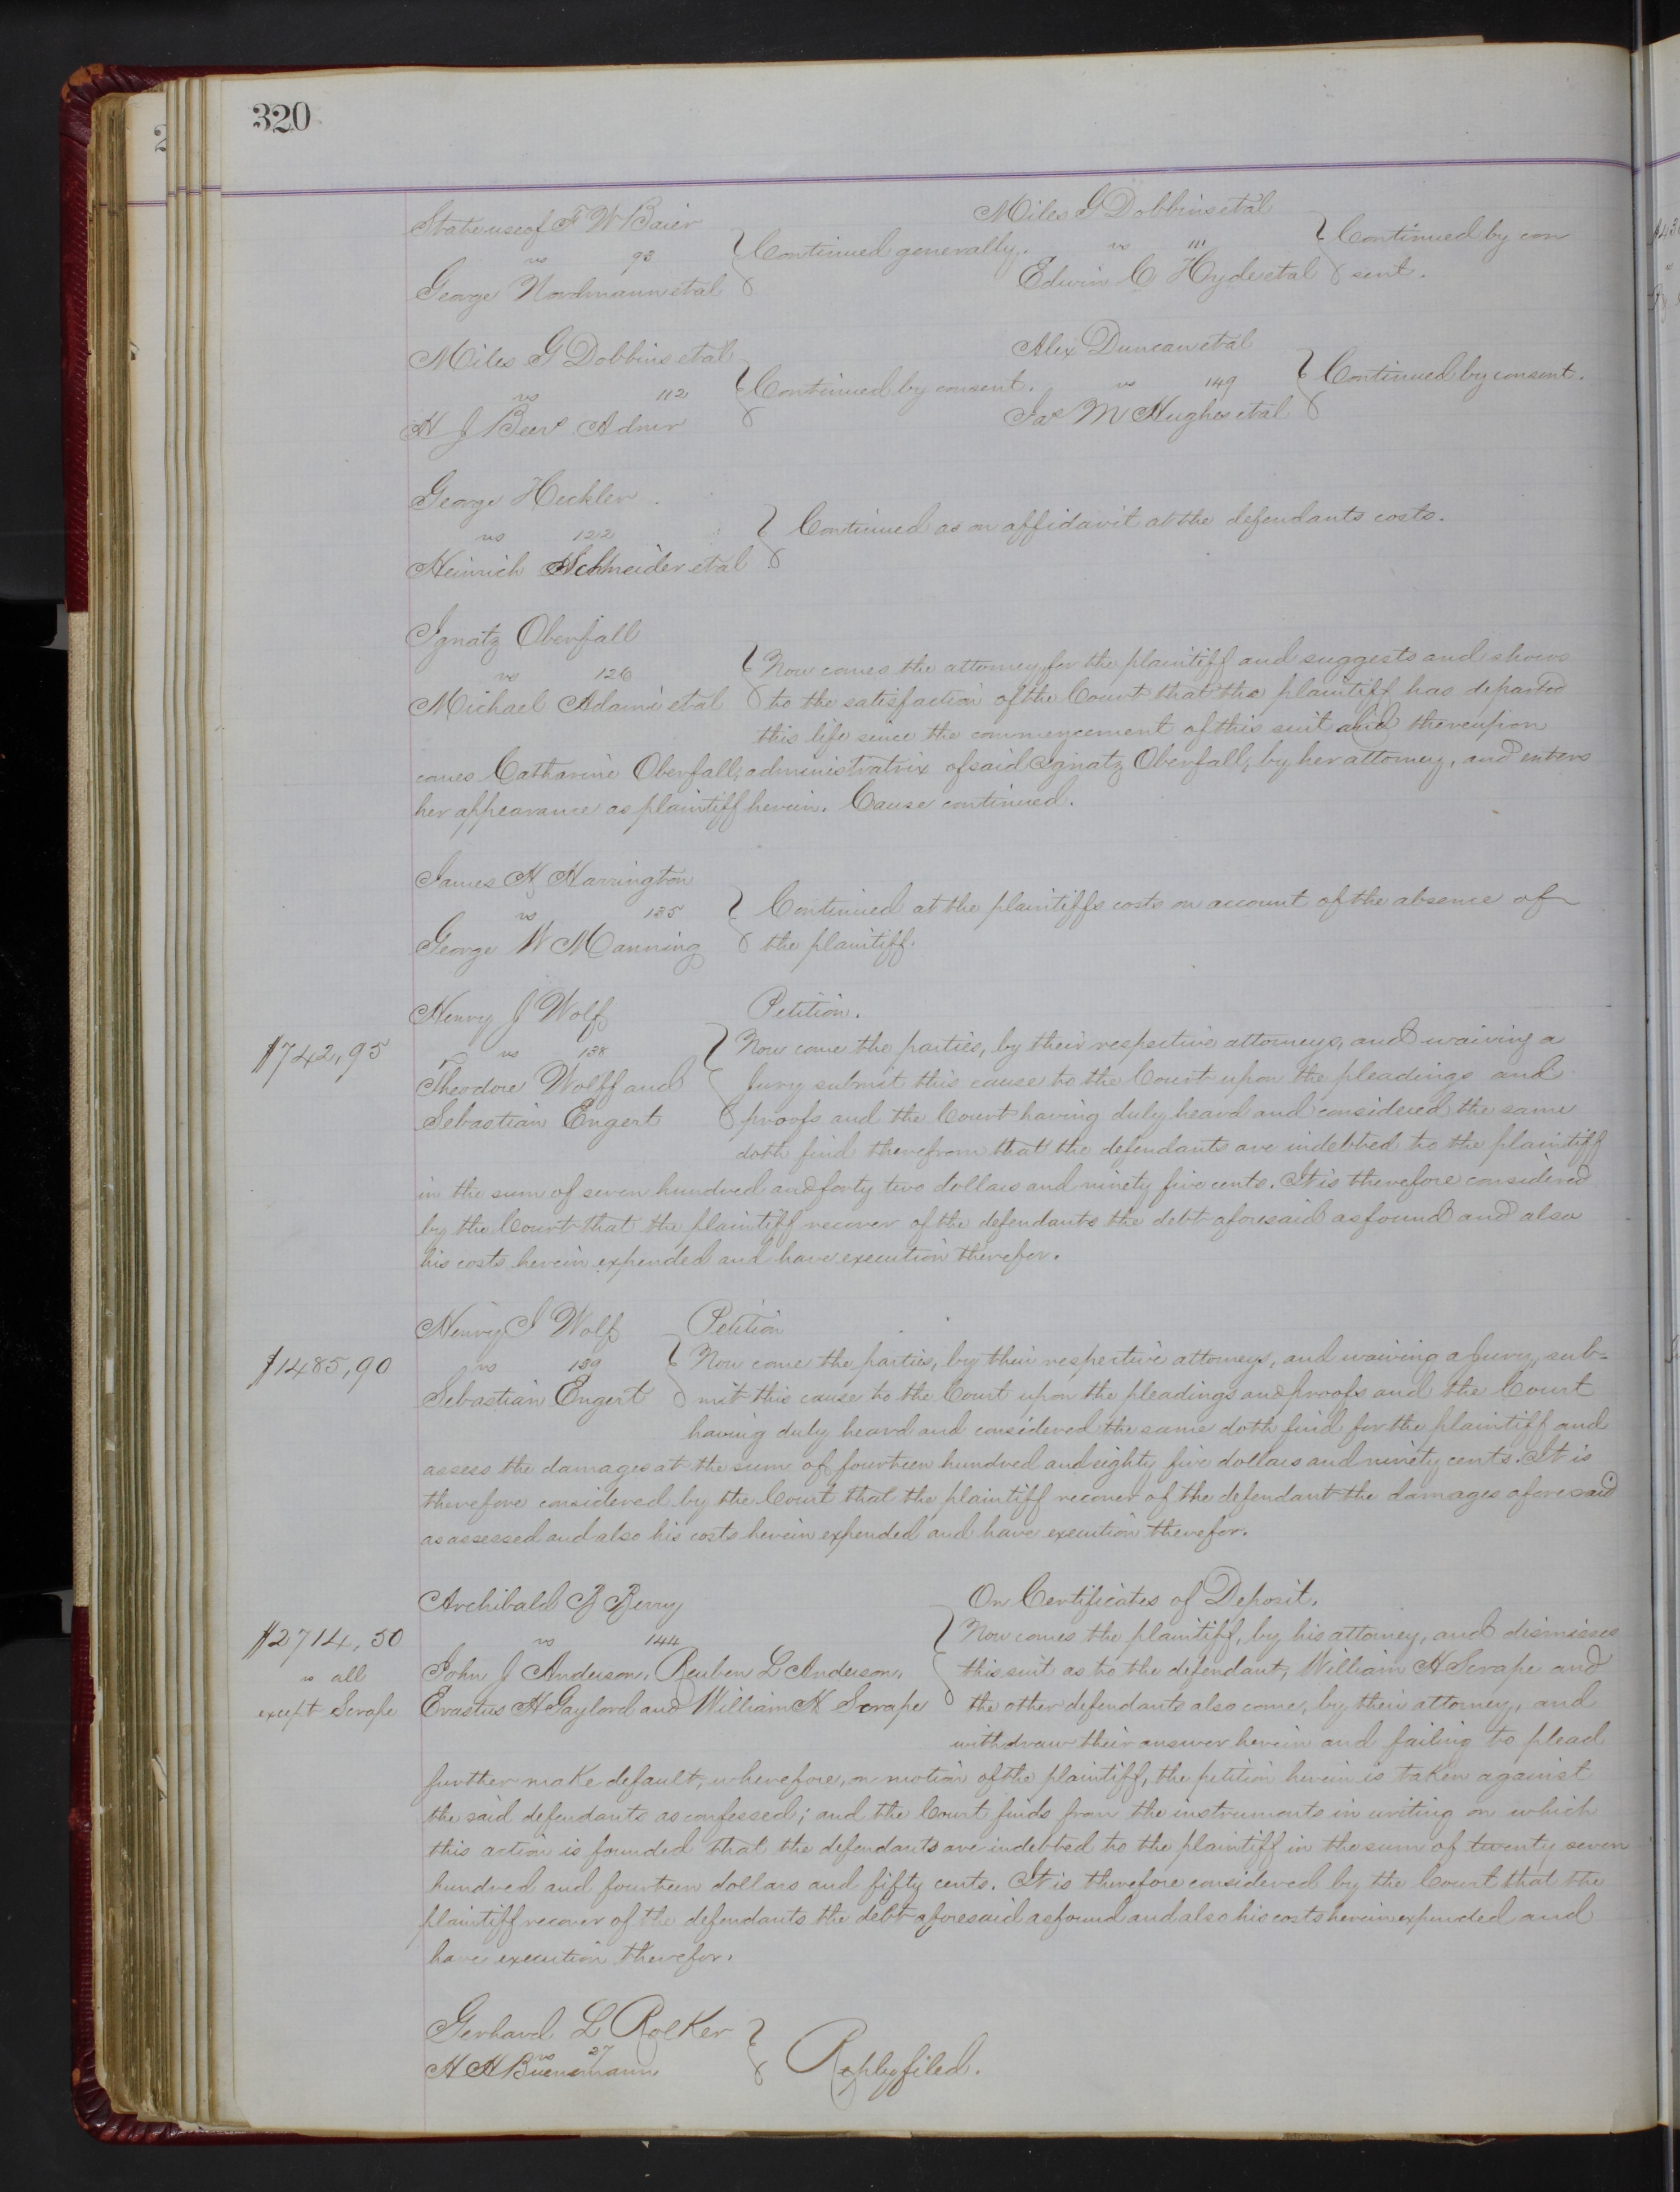 320
State use of F W Baier
vs 93
George Nordmann et al
Continued generally.
Miles G Dobbins et al
vs 111
Edwin C Hyde et al
Continued by con
sent.
Miles G Dobbins et al
vs 112
H J Beers Admr
Continued by consent.
Alex Duncan et al
vs 149
Jas M Hughes et al
Continued by consent.
George Heckler
vs 122
Heinrich Schneider et al
Continued as on affidavit at the defendants costs.
Ignatz Oberfall
vs 126
Michael Adami et al
Now comes the attorney for the plaintiff and suggests and shows
to the satisfaction of the Court that the plaintiff has departed
this life since the commencement of this suit and thereupon
comes Catharine Oberfall, administratrix of said Ignatz Oberfall, by her attorney, and enters
her appearance as plaintiff herein. Cause continued.
James H Harrington
vs 135
George W Manning
Continued at the plaintiffs costs on account of the absence of
the plaintiff.
$742,95
Henry J Wolf
vs 138
Theodore Wolff and
Sebastian Engert
Petition.
Now come the parties, by their respective attorneys, and waiving a
Jury submit this cause to the Court upon the pleadings and
proofs and the Court having duly heard and considered the same
doth find therefrom that the defendants are indebted to the plaintiff
in the sum of seven hundred and forty two dollars and ninety five cents. It is therefore considered
by the Court that the plaintiff recover of the defendants the debt aforesaid as found and also
his costs herein expended and have execution therefor.
$1485,90
Henry J Wolf
vs 139
Sebastian Engert
Petition
Now come the parties, by their respective attorneys, and waiving a Jury, sub-
mit this cause to the Court upon the pleadings and proofs and the Court
having duly heard and considered the same doth find for the plaintiff and
assess the damages at the sum of fourteen hundred and eighty five dollars and ninety cents. It is
therefore considered by the Court that the plaintiff recover of the defendant the damages aforesaid
as assessed and also his costs herein expended and have execution therefor.
$2714,50
vs all
except Scrape
Archibald B Berry
vs 144
John J Anderson, Reuben L Anderson,
Erastus H Gaylord and William H Scrape
On Certificates of Deposit.
Now comes the plaintiff, by his attorney, and dismisses
this suit as to the defendant, William H Scrape and
the other defendants also come, by their attorney, and
withdraw their answer herein and failing to plead
further make default, wherefore, on motion of the plaintiff, the petition herein is taken against
the said defendants as confessed; and the Court finds from the instruments in writing on which
this action is founded that the defendants are indebted to the plaintiff in the sum of twenty seven
hundred and fourteen dollars and fifty cents. It is therefore considered by the Court that the
plaintiff recover of the defendants the debt aforesaid as found and also his costs herein expended and
have execution therefor.
Gerhard L Roelker
vs 27
H H Buensmann
Reply filed.